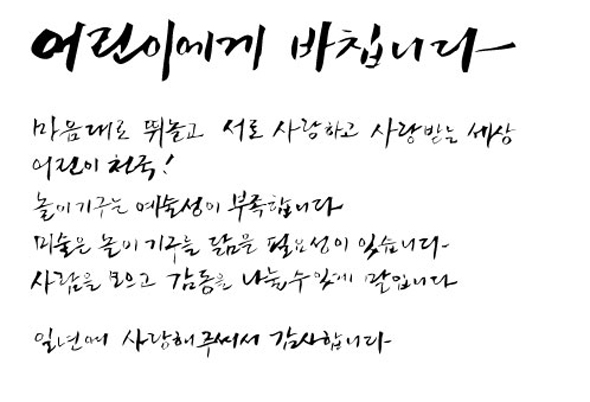 어린이에게 바칩니다
마음대로 뛰놀고 서로 사랑하고 사랑받는 세상
어린이 천국!
놀이기구는 예술성이 부족합니다
미술은 놀이기구를 닮을 필요성이 있습니다
사람을 모으고 감동을 나눌수있게 말입니다
일년에 사랑해주셔서 감사합니다